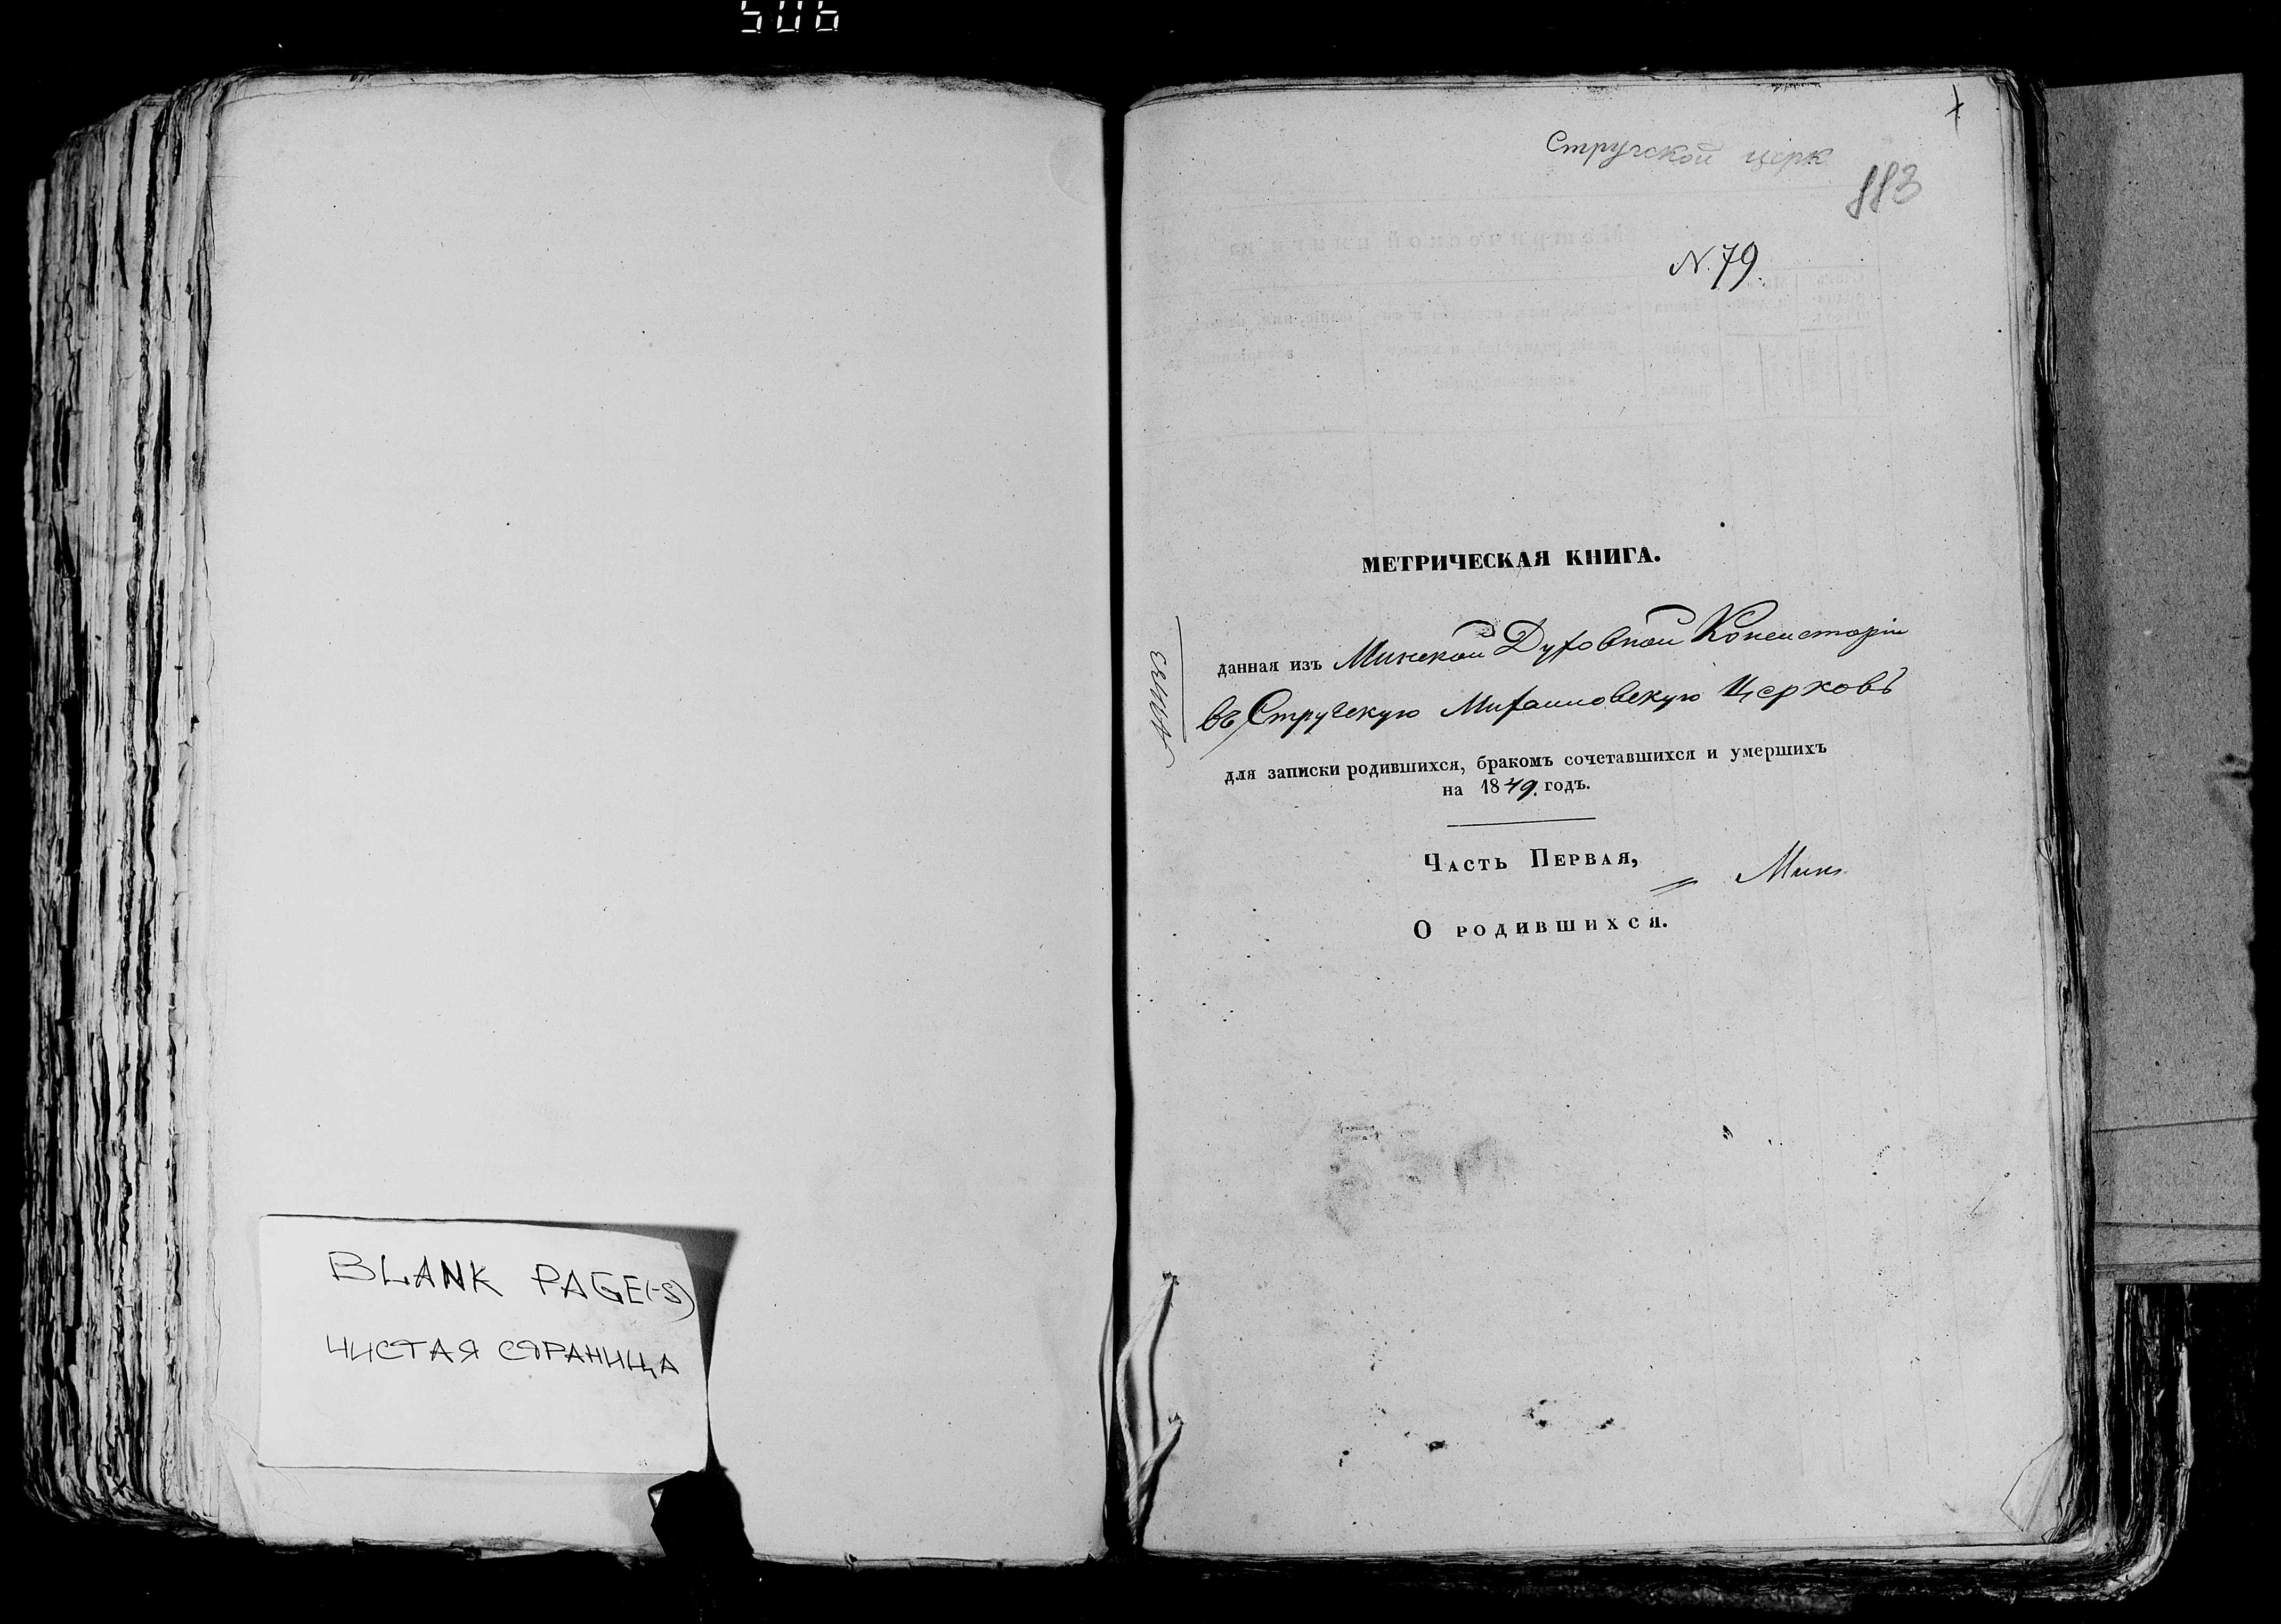 506
BLANK PAGE(-S)
ЧИСТАЯ СТРАНИЦА
Стручской церк
883
N. 79.
МЕТРИЧЕСКАЯ КНИГА.
данная изъ Минской Духовной Консисторіи
въ Стручскую Михайловскую Церковь
для записки родившихся, бракомъ сочетавшихся и умершихъ
на 1849. годъ.
Часть Первая,
О родившихся.